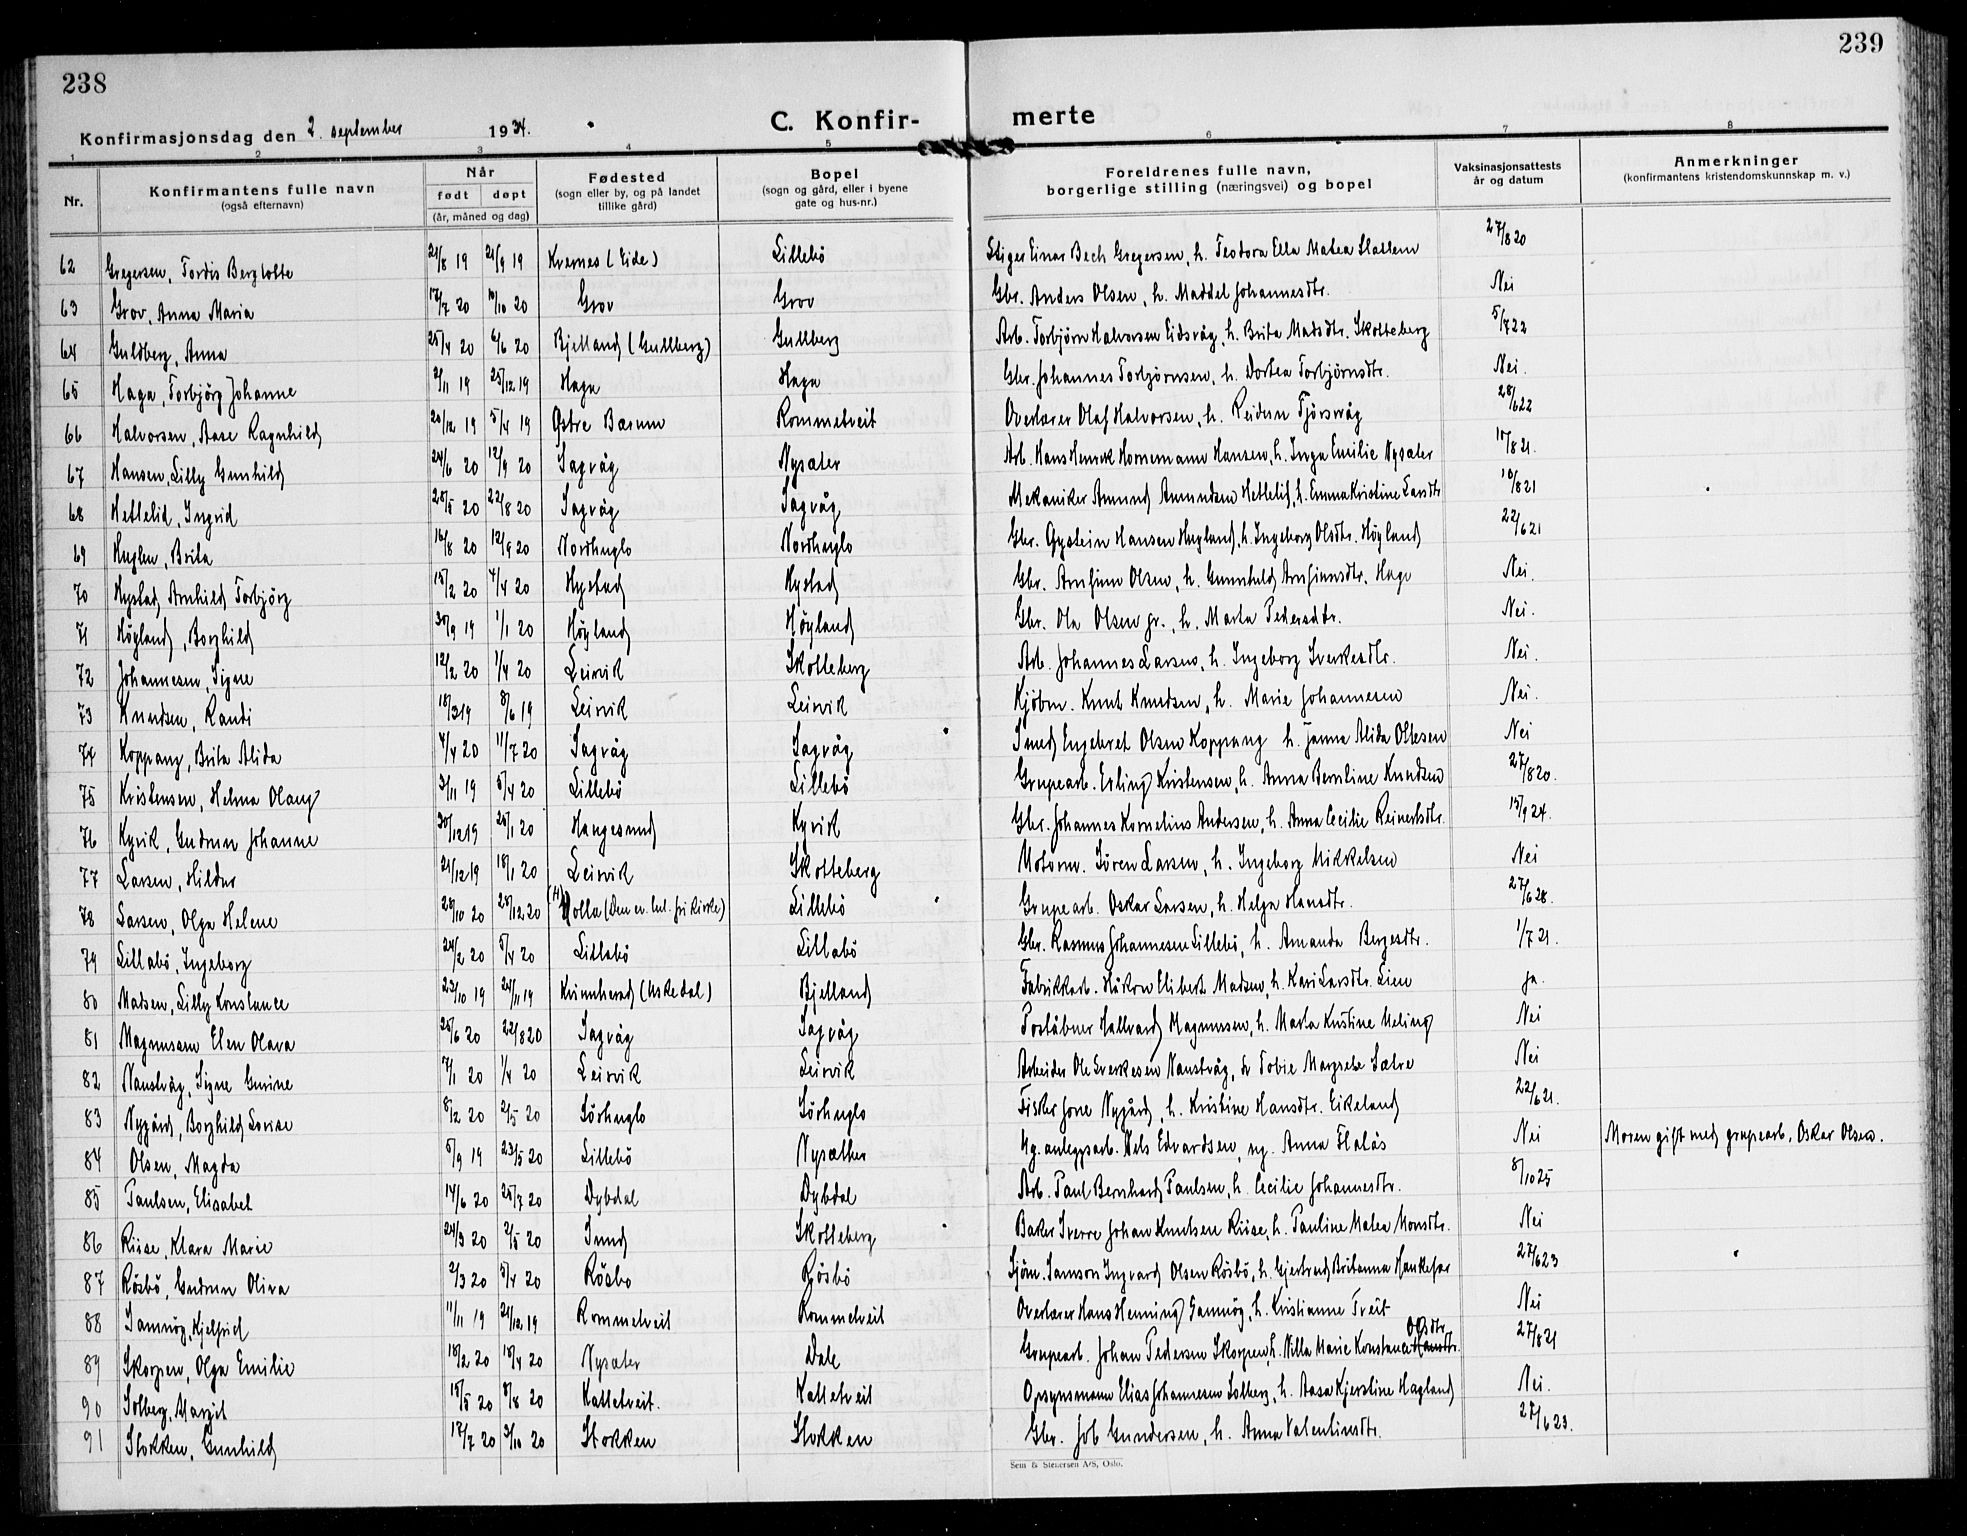 238
239
Konfirmasjonsdag den 2. september 1934.
C. Konfir-
merte
1 2 3 4 5 6 7 8
Nr.
Konfirmantens fulle navn
(også efternavn)
Når
født døpt
(år, måned og dag)
Fødested
(sogn eller by, og på landet
tillike gård)
Bopel
(sogn og gård, eller i byene
gate og hus-nr.)
Foreldrenes fulle navn,
borgerlige stilling (næringsvei) og bopel
Vaksinasjonsattests
år og datum
Anmerkninger
(konfirmantens kristendomskunnskap m. v.)
62 Gregersen, Tordis Bergliotte 21/8 19 21/9 19 Kvernes (Eide) Lillebö Stiger Einar Bech Gregersen, h. Teodora Ella Matea Hallem 27/8 20
63 Grov, Anna Maria 17/7 20 10/10 20 Grov Grov Gbr. Anders Olsen, h. Maddel Johannesdtr. Nei
64 Guldberg, Anna 25/4 20 6/6 20 Bjelland (Gullberg) Gullberg Arb. Torbjörn Halvorsen Eidsvåg, h. Brita Madsdtr. Skotteberg 5/7 22
65 Haga, Torbjörg Johanne 2/11 19 25/12 19 Haga Haga Gbr. Johannes Torbjörnsen, h. Dortea Torbjörnsdtr. Nei.
66 Halvorsen, Aase Ragnhild 20/12 19 5/4 19 Östre Bærum Rommetveit Overlærer Olaf Halvorsen, h. Reidun Tjörsvåg 28/6 22
67 Hansen, Lilly Gunhild 24/6 20 12/9 20 Sagvåg Nysæter Arb. Hans Henrik Hornemann Hansen, h. Inga Emilie Nysæter 11/8 21.
68 Hetlelid, Ingrid 28/5 20 22/8 20 Sagvåg Sagvåg Mekaniker Amund Amundsen Hetlelid, h. Emma Kristine Larsdtr 10/8 21
69 Huglen, Brita 16/8 20 12/9 20 Nordhuglo Nordhuglo Gbr. Öystein Hansen Hugland, h. Ingeborg Olsdtr. Höyland 22/6 21
70 Hystad, Arnhild Torbjörg 15/2 20 4/4 20 Hystad Hystad Gbr. Arnfinn Olsen, h. Gunnhild Arnfinnsdtr. Hage Nei.
71 Höyland, Borghild 30/9 19 1/1 20 Höyland Höyland Gbr. Ola Olsen jr., h. Marta Pedersdtr. Nei.
72 Johannesen, Signe 12/2 20 1/4 20 Leirvik Skotteberg Arb. Johannes Larsen, h. Ingeborg Sverkesdtr. Nei.
73 Knudsen, Randi 18/3 19 8/6 19 Leirvik Leirvik Kjöbm. Knut Knudsen, h. Marie Johannesen Nei.
74 Koppang, Brita Alida 4/4 20 11/7 20 Sagvåg Sagvåg Smed Engebret Olsen Koppang h. Janna Alida Ottesen Nei
75 Kristensen, Helma Olaug 3/11 19 5/4 20 Lillebö Lillebö Grupearb. Erling Kristensen, h. Anna Berntine Knudsen 27/8 20.
76 Kyvik, Gudrun Johanne 30/12 19 25/1 20 Haugesund Kyvik Gbr. Johannes Kornelius Andersen, h. Anna Cecilie Reinertsdtr. 15/9 24.
77 Larsen, Hildur 21/12 19 18/1 20 Leirvik Skotteberg Motorm. Sören Larsen, h. Ingeborg Mikkelsen Nei
78 Larsen, Olga Helene 28/10 20 28/12 20 (H) Holla (Den ev. lut. frikirke) Lillebö Grupearb. Oskar Larsen, h. Helga Hansdtr. 27/6 28.
79 Lillabö, Ingeborg 24/2 20 5/4 20 Lillabö Lillabö Gbr. Rasmus Johannesen Lillebö, h. Amanda Bergesdtr. 1/7 21.
80 Madsen, Lilly Konstance 23/10 19 24/11 19 Kvinnherad (Uskedal) Bjelland Fabrikkarb. Håkon Elibert Madsen, h. Kari Larsdtr. Lien Ja.
81 Magnussen Elen Olava 25/6 20 22/8 20 Sagvåg Sagvåg Poståbner Hallvard Magnussen, h. Marta Kristine Meling Nei
82 Naustvåg, Signe Gurine 7/1 20 1/4 20 Leirvik Leirvik Arbeider Ole Sverkesen Naustvåg, h Tobie Margrete Sætre Nei
83 Nygård, Borghild Lovise 8/12 20 2/5 20 Sörhuglo Sörhuglo Fisker Jone Nygård, h. Kristine Hansdtr. Eikeland 22/6 21.
84 Olsen, Magda 5/9 19 23/5 20 Lillebö Nysæther Ug. anleggsarb. Nels Edvardsen, ug. Anna Flatås Nei Moren gift med grupearb. Oskar Olsen.
85 Paulsen, Elisabet 14/6 20 25/7 20 Dybdal Dybdal Arb. Paul Bernhard Paulsen, h. Cecilie Johannesdtr. 8/10 25
86 Riise, Klara Marie 24/3 20 2/5 20 Sund Skotteberg Baker Sverre Johan Knutsen Riise, h. Pauline Matea Monsdtr. Nei
87 Rösbö, Gudrun Oliva 2/3 20 5/4 20 Rösbo Rösbö Sjöm. Samson Ingvard Olsen Rösbö, h. Gjertrud Britanna Haukefær 27/6 23
88 Samnöy, Kjelfrid 11/11 19 21/12 19 Rommetveit Rommetveit Overlærer Hans Henning Samnöy, h. Kristianne Tveit Nei
89 Skorpen, Olga Emilie 18/2 20 18/4 20 Nysæter Dale Grupearb. Johan Pedersen Skorpen, h. Nilla Marie Konstanse Hansdtr. Olsdtr. 27/8 21
90 Solberg, Margit 15/5 20 8/8 20 Kattetveit. Kattetveit Opsynsmann Elias Johannesen Solberg, h. Aasa Kjerstine Hagland Nei.
91 Stokken, Gunhild 17/7 20 3/10 20 Stokken Stokken Gbr. Job Gundersen, h. Anna Valentinsdtr. 27/6 23.
Sem & Stenersen A/S, Oslo.